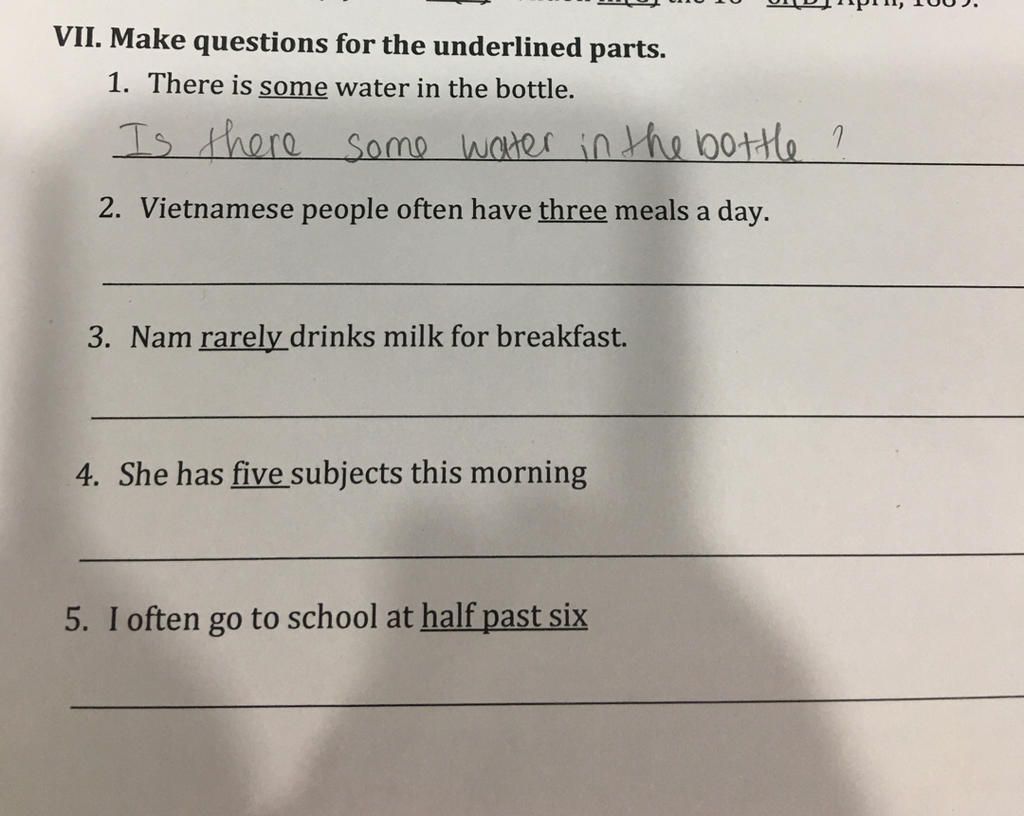 VII. Make questions for the underlined parts.
1. There is some water in the bottle.
Is there some water in the bottle ?
2. Vietnamese people often have three meals a day.
3. Nam rarely drinks milk for breakfast.
4. She has five subjects this morning
5. I often go to school at half past six